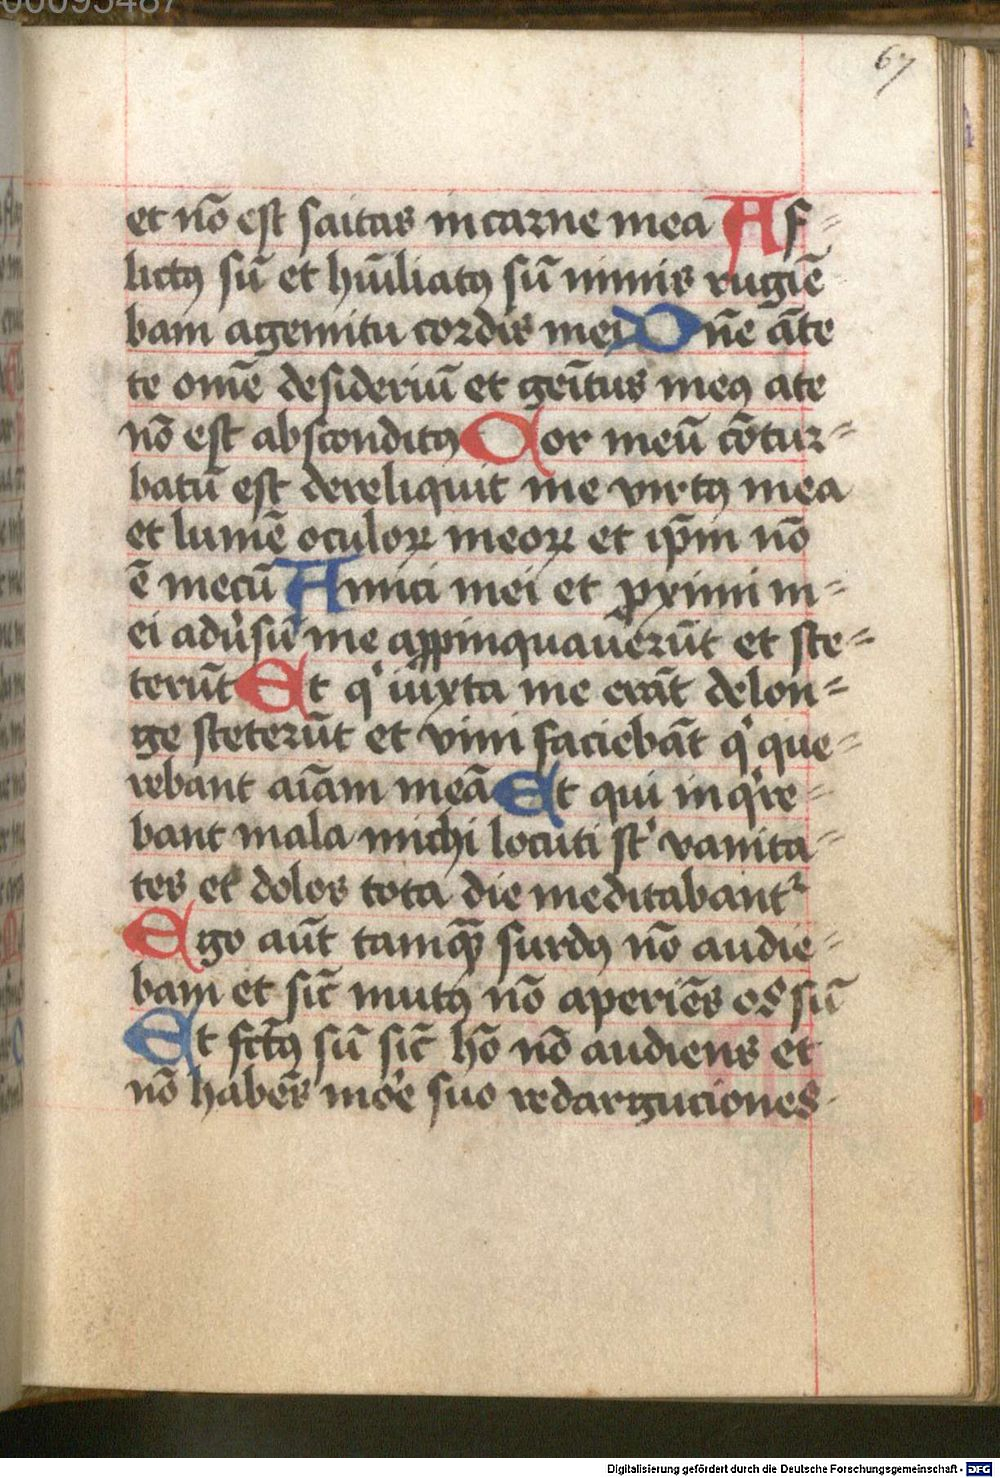 00095487
67
et nō est saitas in carne mea Af=
lictꝰ sū et hūiliatꝰ sū nimis rugiē
bam agemitu cordis mei Dn̄e āte
te om̄e desideriū et geītus meꝰ ate
nō est absconditꝰ Cor meū cōtur=
batū est dereliquit me virtꝰ mea
et lumē oculoꝝ meoꝝ et ip̄m nō
ē mecū Amici mei et ꝓximi m=
ei adu̓sū me aꝓpinquauerūt et ste=
terūt Et qͥ iuxta me erāt delon=
ge steterūt et vim faciebāt qͥ que=
rebant aīam meā Et qui inqͥre=
bant mala michi locuti st̓ vanita=
tes et dolos tota die meditabantᷣ
Ego aūt tamqꝫ surdꝰ nō audie=
bam et sic̄ mutꝰ nō aperiēs os sūū
Et fct̄ꝰ sū sic̄ hō nō audiens et
nō habēs in o̓e suo redarguciones
Digitalisierung gefördert durch die Deutsche Forschungsgemeinschaft - DFG